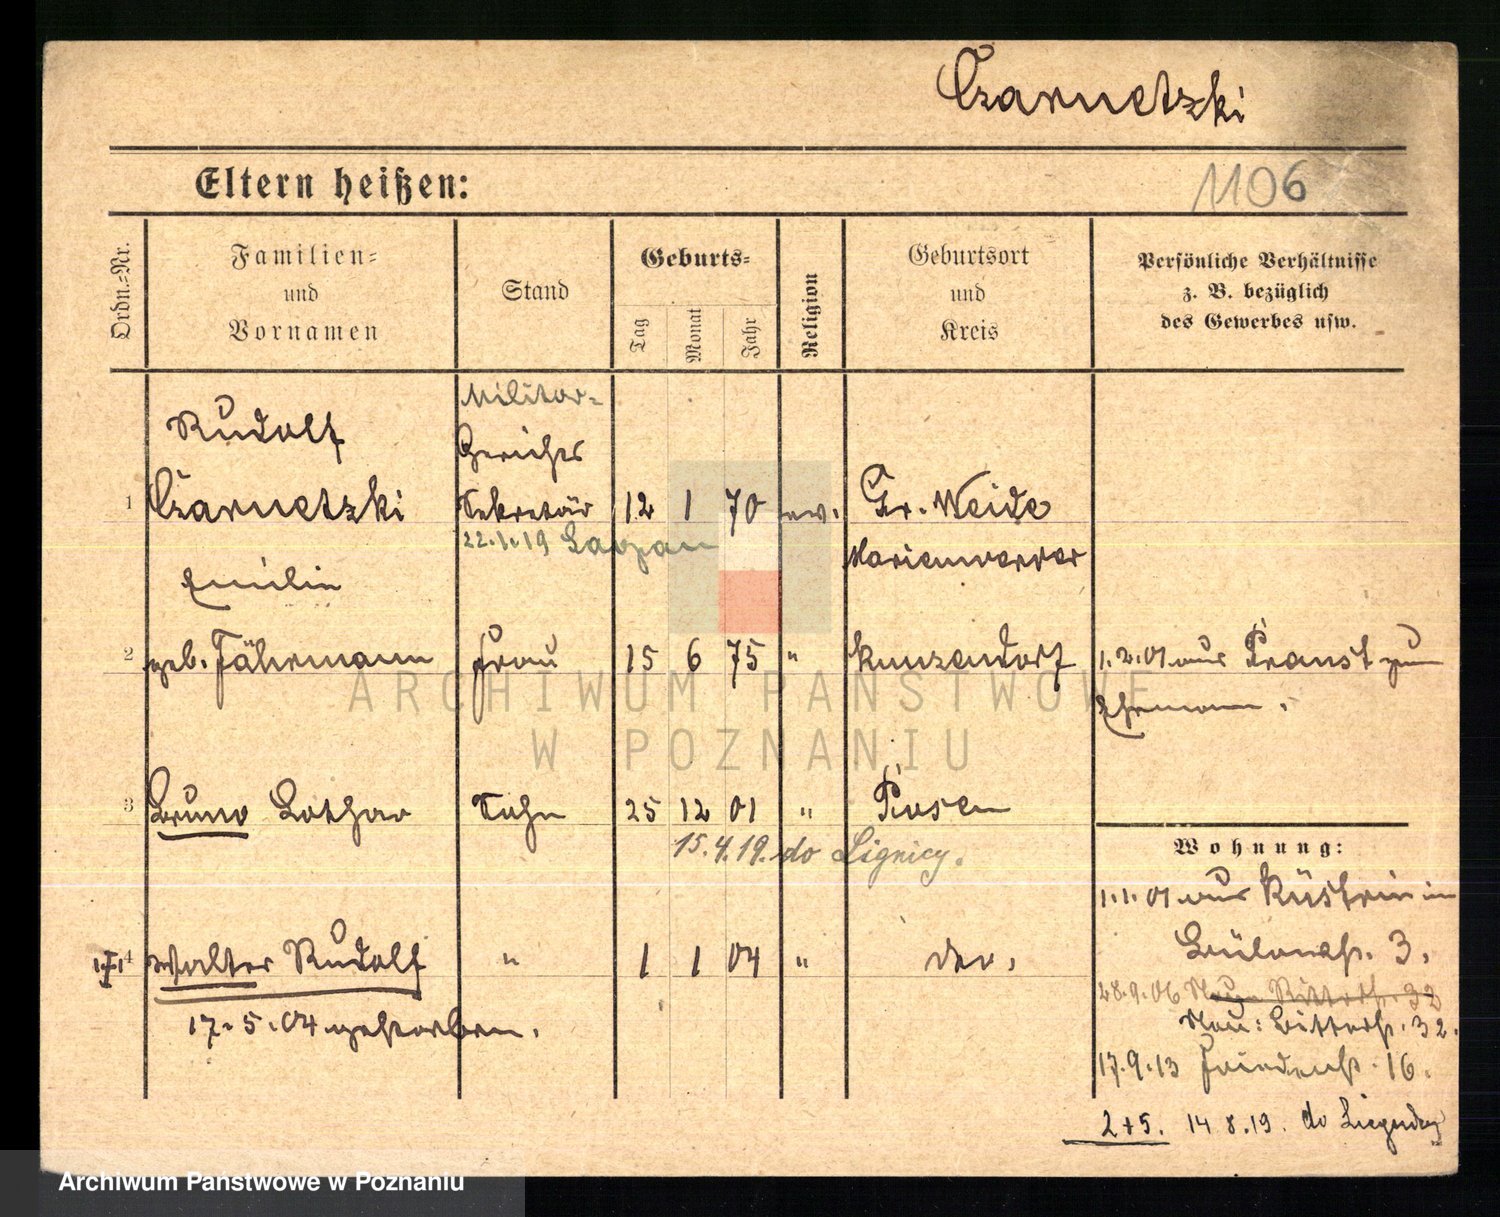 Czarnetzki
Eltern heißen:
1106
Ordn.=Nr.
Familien=
und
Vornamen
Stand
Geburts=
Tag
Monat
Jahr
Religion
Geburtsort
und
Kreis
Persönliche Verhältnisse
z. B. bezüglich
des Gewerbes usw.
Rudolf
Militär-
Gerichts
1 Czarnetzki Sekretär 12 1 70 ev. Gr. Weide
22.1.19
Marienwerder
Emilie
2 geb. Fährmann Frau 15 6 75 " Kunzendorf 1.2.01 aus Praust zum
Ehemann.
ARCHIWUM PAŃSTWOWE
W POZNANIU
3 Bruno Lothar Sohn 25 12 01 " Posen
15.4.19. do Lignicy.
Wohnung:
1.1.01 aus Küstrin in
Bülowstr. 3.
4 Walter Rudolf " 1 1 04 " do.
28.9.06 Neue Ritterstr. 32
17.5.04 gestorben.
Neu: Ritterstr. 32.
17.9.13 Friedenstr. 16.
2+5. 14 8.19. do
Archiwum Państwowe w Poznaniu